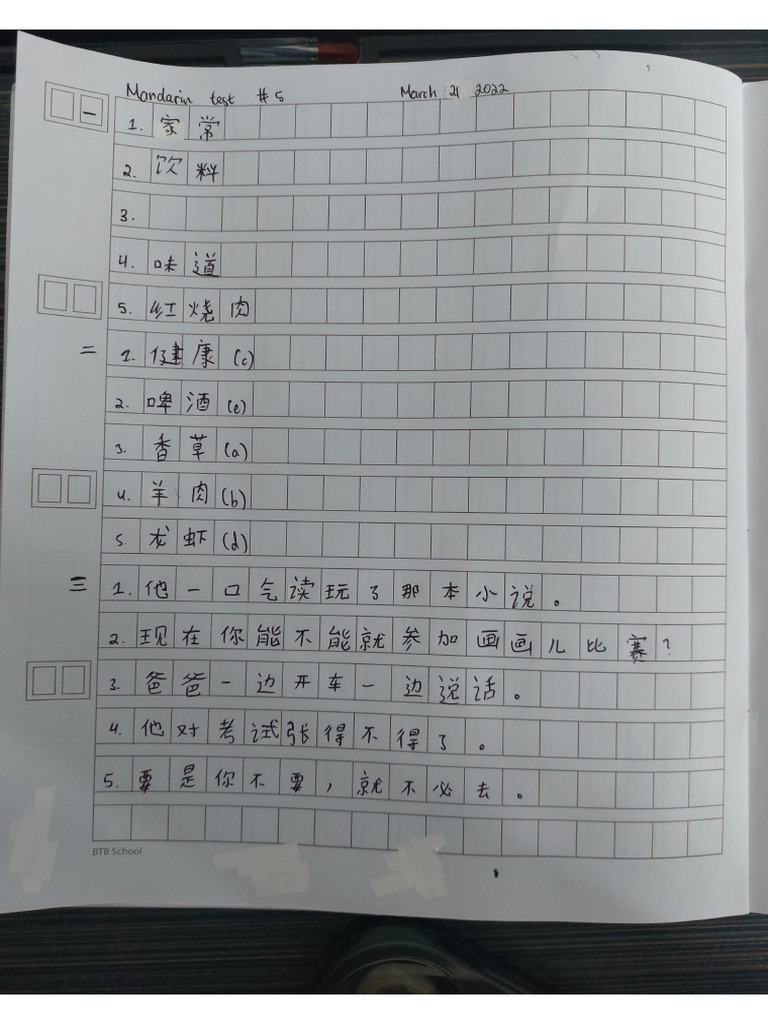 Mandarin test #5 March 21 2022
一
1. 家常
2. 饮料
3.
4. 味道
5. 红烧肉
二 1. 健康 (c)
2. 啤酒 (e)
3. 香草 (a)
4. 羊肉 (b)
5. 龙虾 (d)
三 1. 他一口气读玩了那本小说。
2. 现在你能不能就参加画画儿比赛?
3. 爸爸一边开车一边说话。
4. 他对考试张得不得了。
5. 要是你不要,就不必去。
BTB School